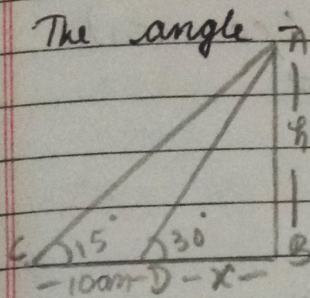 The angle
A
h
C 15° 30° B
-100m- D - x -